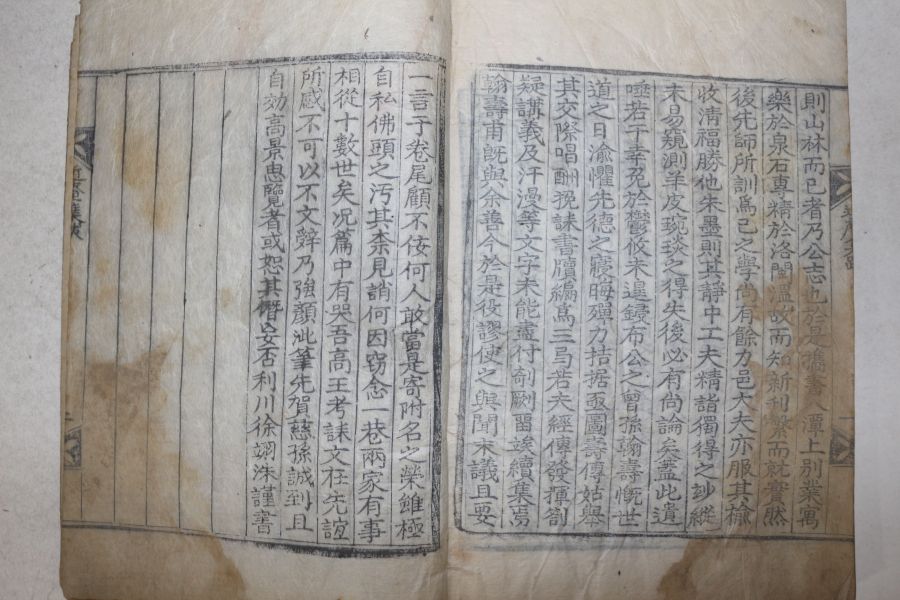 則山林而已者乃公志也於是攜書入潭上別業寓
樂於泉石專精於洛閩溫故而知新刊繁而就實然
後先師所訓爲己之學尚有餘力邑大夫亦服其榆
收淸福勝他朱墨則其靜中工夫精詣獨得之妙縱
未易窺測羊皮琬琰之得失後必有尚論矣蓋此遺
唾若干幸免於鬱攸未遑鋟布公之曾孫翰壽慨世
道之日渝懼先德之寢晦殫力拮据亟圖壽傳姑擧
其交際唱酬挽誄書牘編爲三弓若夫經傳發揮劄
疑講義及汗漫等文字未能盡付剞劂留竢續集焉
翰壽甫旣與余善今於是役謬使之與聞末議且要
一言于卷尾顧不侫何人敢當是寄附名之榮雖極
自私佛頭之汚其柰見誚何因窃念一巷兩家有事
相從十數世矣况篇中有哭吾高王考誄文在先誼
所感不可以不文辭乃強顔泚筆先賀慈孫誠到且
自効高景思覽者或恕其僭妄否利川徐翊洙謹書